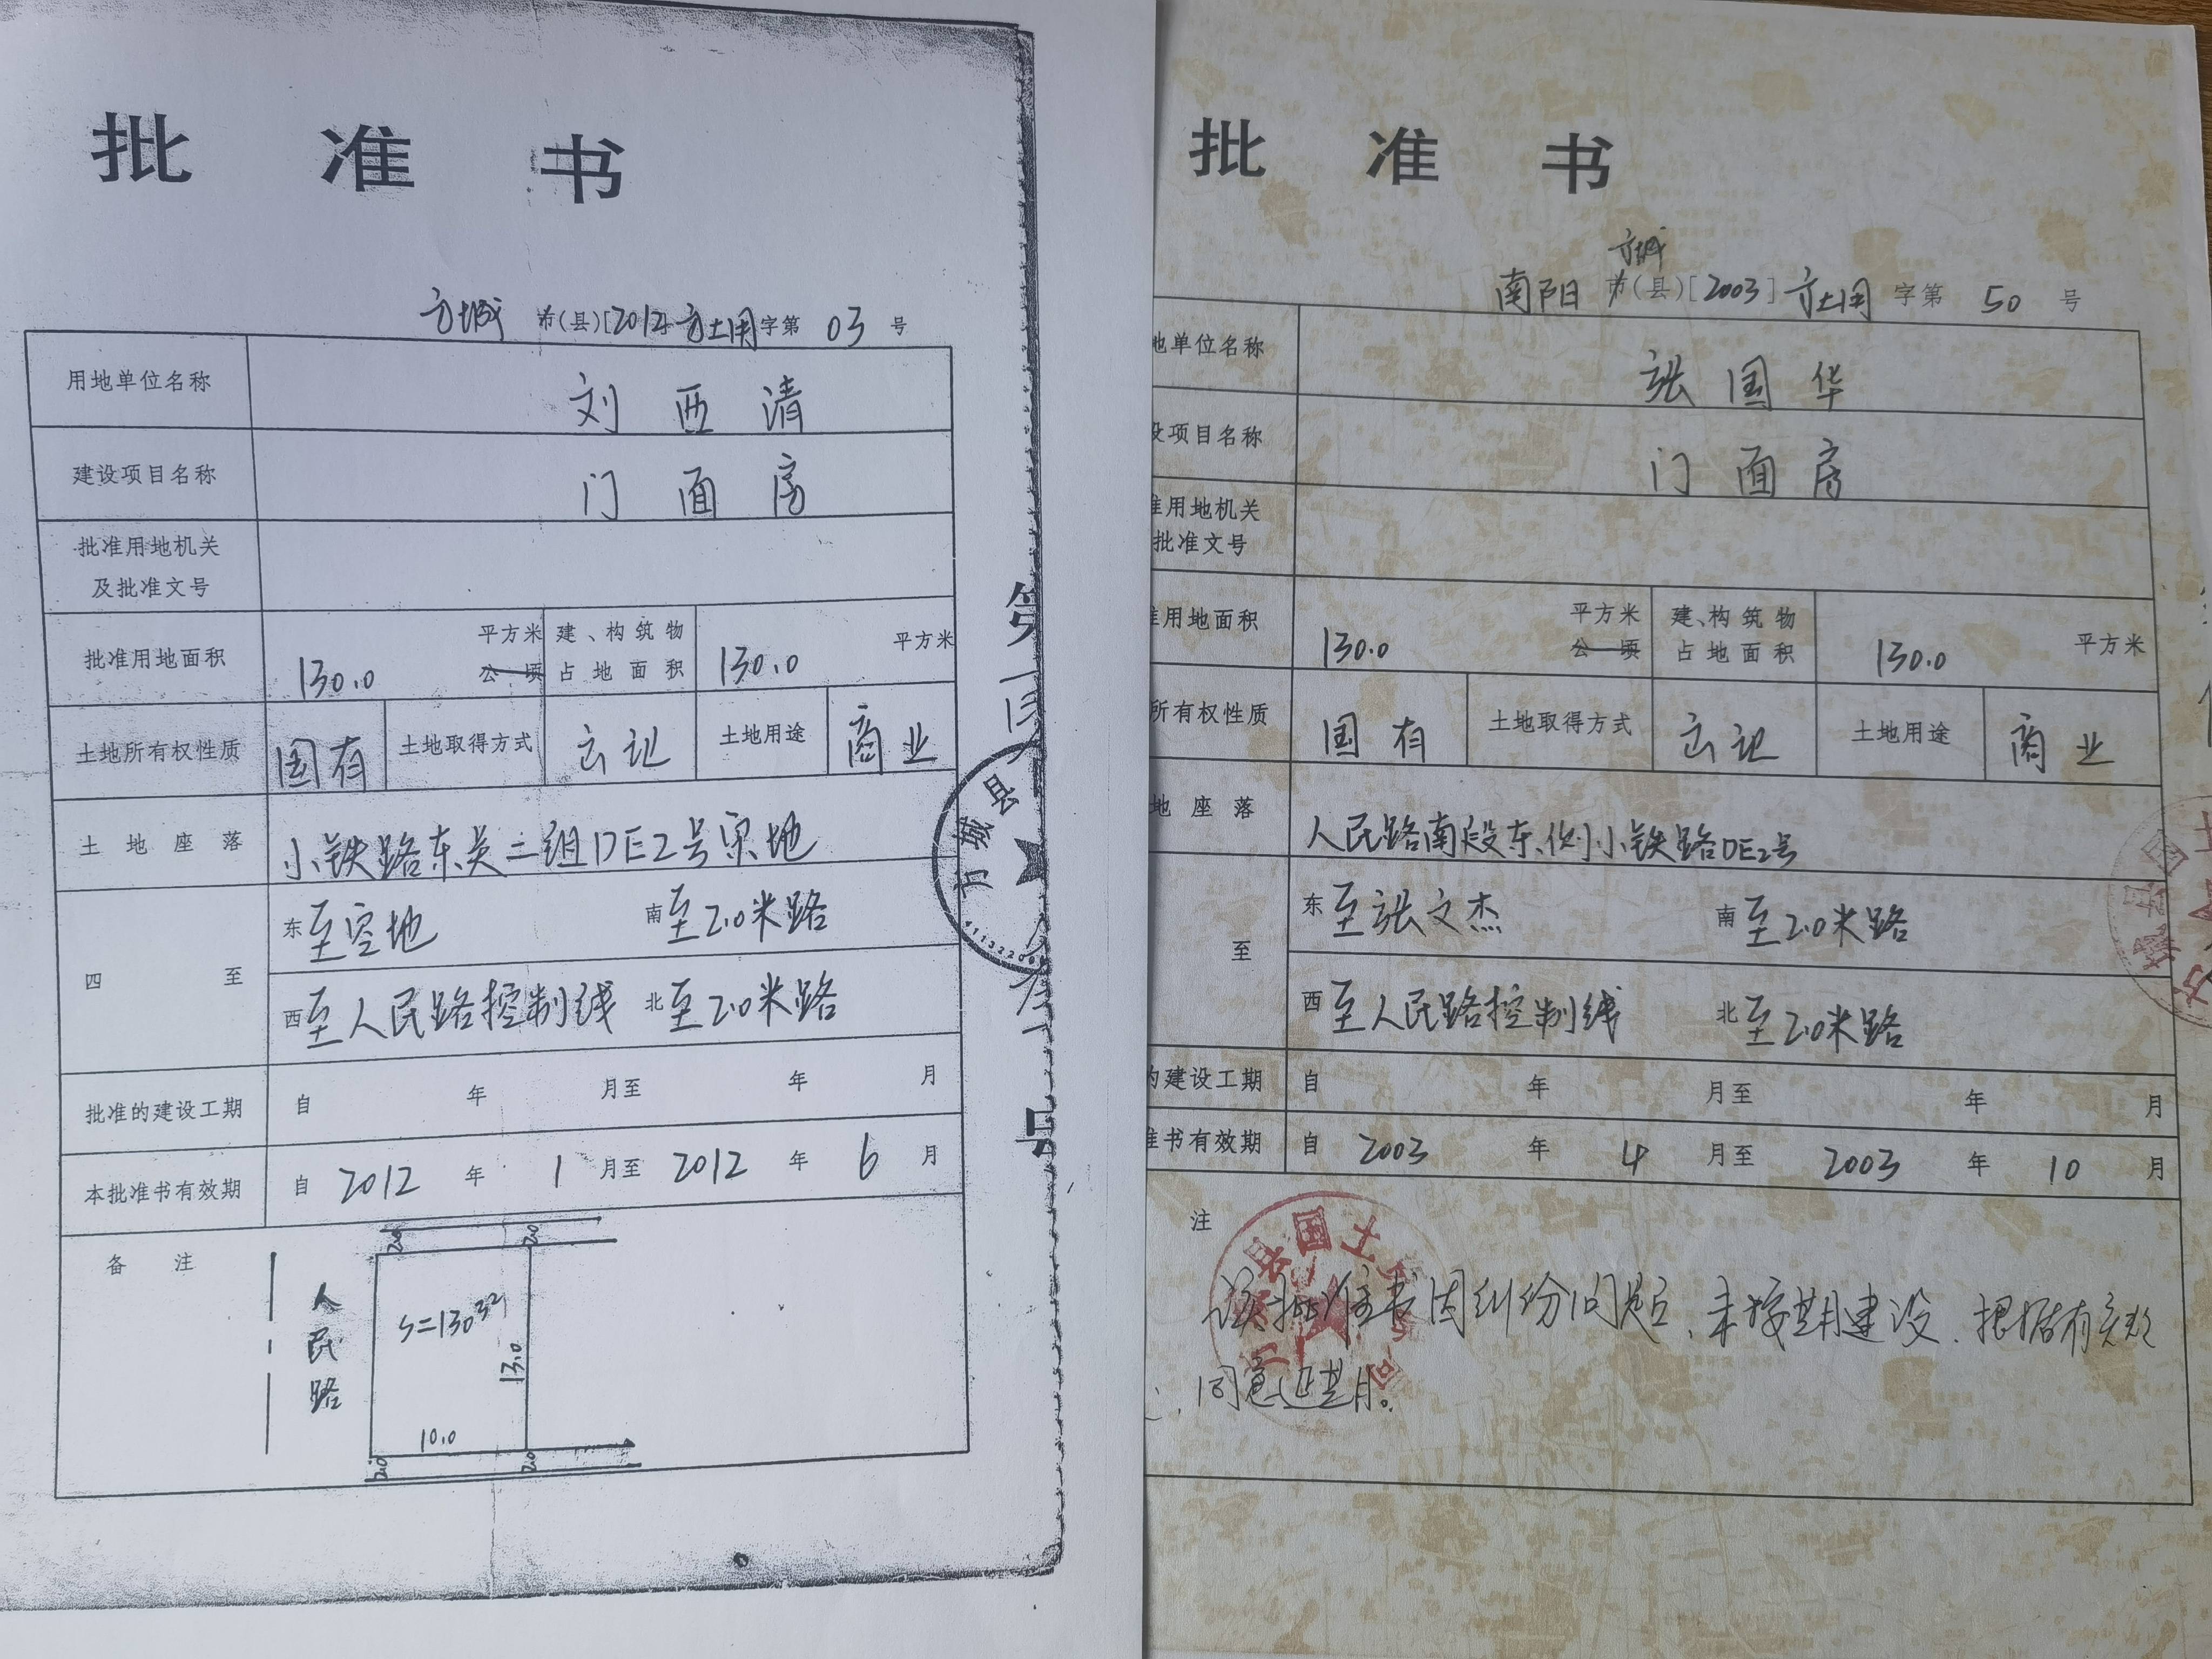 批 准 书
方城 市(县)[2012]方土用字第 03 号
用地单位名称 刘西清
建设项目名称 门面房
批准用地机关
及批准文号
批准用地面积 130.0 平方米 公顷 建、构筑物占地面积 130.0 平方米
土地所有权性质 国有 土地取得方式 出让 土地用途 商业
土地座落 小铁路东关二组DE2号宗地
四至 东至空地 南至2.0米路
西至人民路控制线 北至2.0米路
批准的建设工期 自 年 月至 年 月
本批准书有效期 自 2012 年 1 月至 2012 年 6 月
备注
人民路
2.0 2.0
S=130
13.0
10.0
2.0 2.0
方城县
号
批 准 书
方城
南阳 市(县)[2003]方土用 字第 50 号
地单位名称 张国华
设项目名称 门面房
准用地机关
批准文号
准用地面积 130.0 平方米 公顷 建、构筑物占地面积 130.0 平方米
所有权性质 国有 土地取得方式 出让 土地用途 商业
地座落 人民路南段东侧小铁路DE2号
至 东至张文杰 南至2.0米路
西至人民路控制线 北至2.0米路
的建设工期 自 年 月至 年 月
准书有效期 自 2003 年 4 月至 2003 年 10 月
注
县国土
该批准书因纠纷问题、未按期建设、根据有关
同意延期。